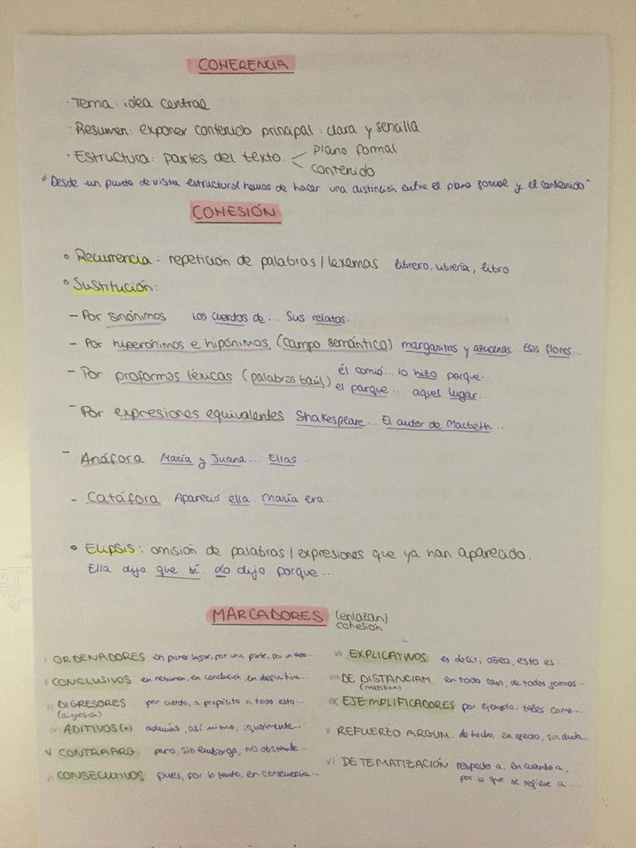 COHERENCIA
· Tema: idea central
· Resumen: exponer contenido principal: clara y sencilla
· Estructura: partes del texto < plano formal
contenido
"Desde un punto de vista estructural hemos de hacer una distinción entre el plano formal y el contenido"
COHESIÓN
• Recurrencia: repetición de palabras / lexemas librero, librería, libro
• Sustitución:
- Por sinónimos Los cuentos de... Sus relatos...
- Por hiperónimos e hipónimos (campo semántico) margaritas y azucenas... Esas flores...
- Por proformas léxicas (palabras baúl) él comió... lo hizo porque...
el parque... aquel lugar...
- Por expresiones equivalentes Shakespeare... El autor de Macbeth...
- Anáfora María y Juana... Ellas...
- Catáfora Apareció ella. María era...
• Elipsis: omisión de palabras / expresiones que ya han aparecido.
Ella dijo que sí. Lo dijo porque...
MARCADORES (enlazan)
cohesión
I ORDENADORES en primer lugar, por una parte, por un lado...
II CONCLUSIVOS en resumen, en conclusión en definitiva...
III DIGRESORES por cierto, a propósito a todo esto...
(digresión)
IV ADITIVOS (+) además, así mismo, igualmente...
V CONTRAARG. pero, sin embargo, no obstante...
VI CONSECUTIVOS pues, por lo tanto, en consecuencia...
VII EXPLICATIVOS es decir, o sea, esto es...
VIII DE DISTANCIAM. en todo caso, de todas formas...
(matizan)
IX EJEMPLIFICADORES por ejemplo, tales como...
X REFUERZO ARGUM. de hecho, en efecto, sin duda...
XI DE TEMATIZACIÓN respecto a, en cuanto a,
por lo que se refiere a...